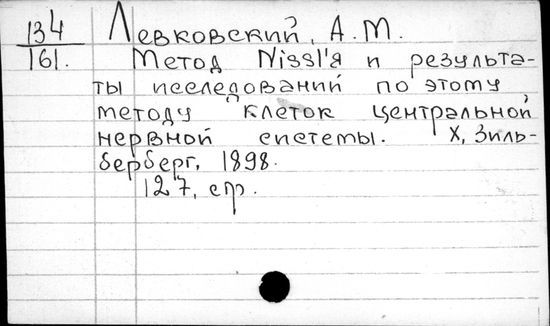 134 Левковский, А. М.
161. Метод Nissl'я и результа-
ты исследований по этому
методу клеток центральной
нервной системы. Х, Зиль-
берберг, 1898.
127, стр.